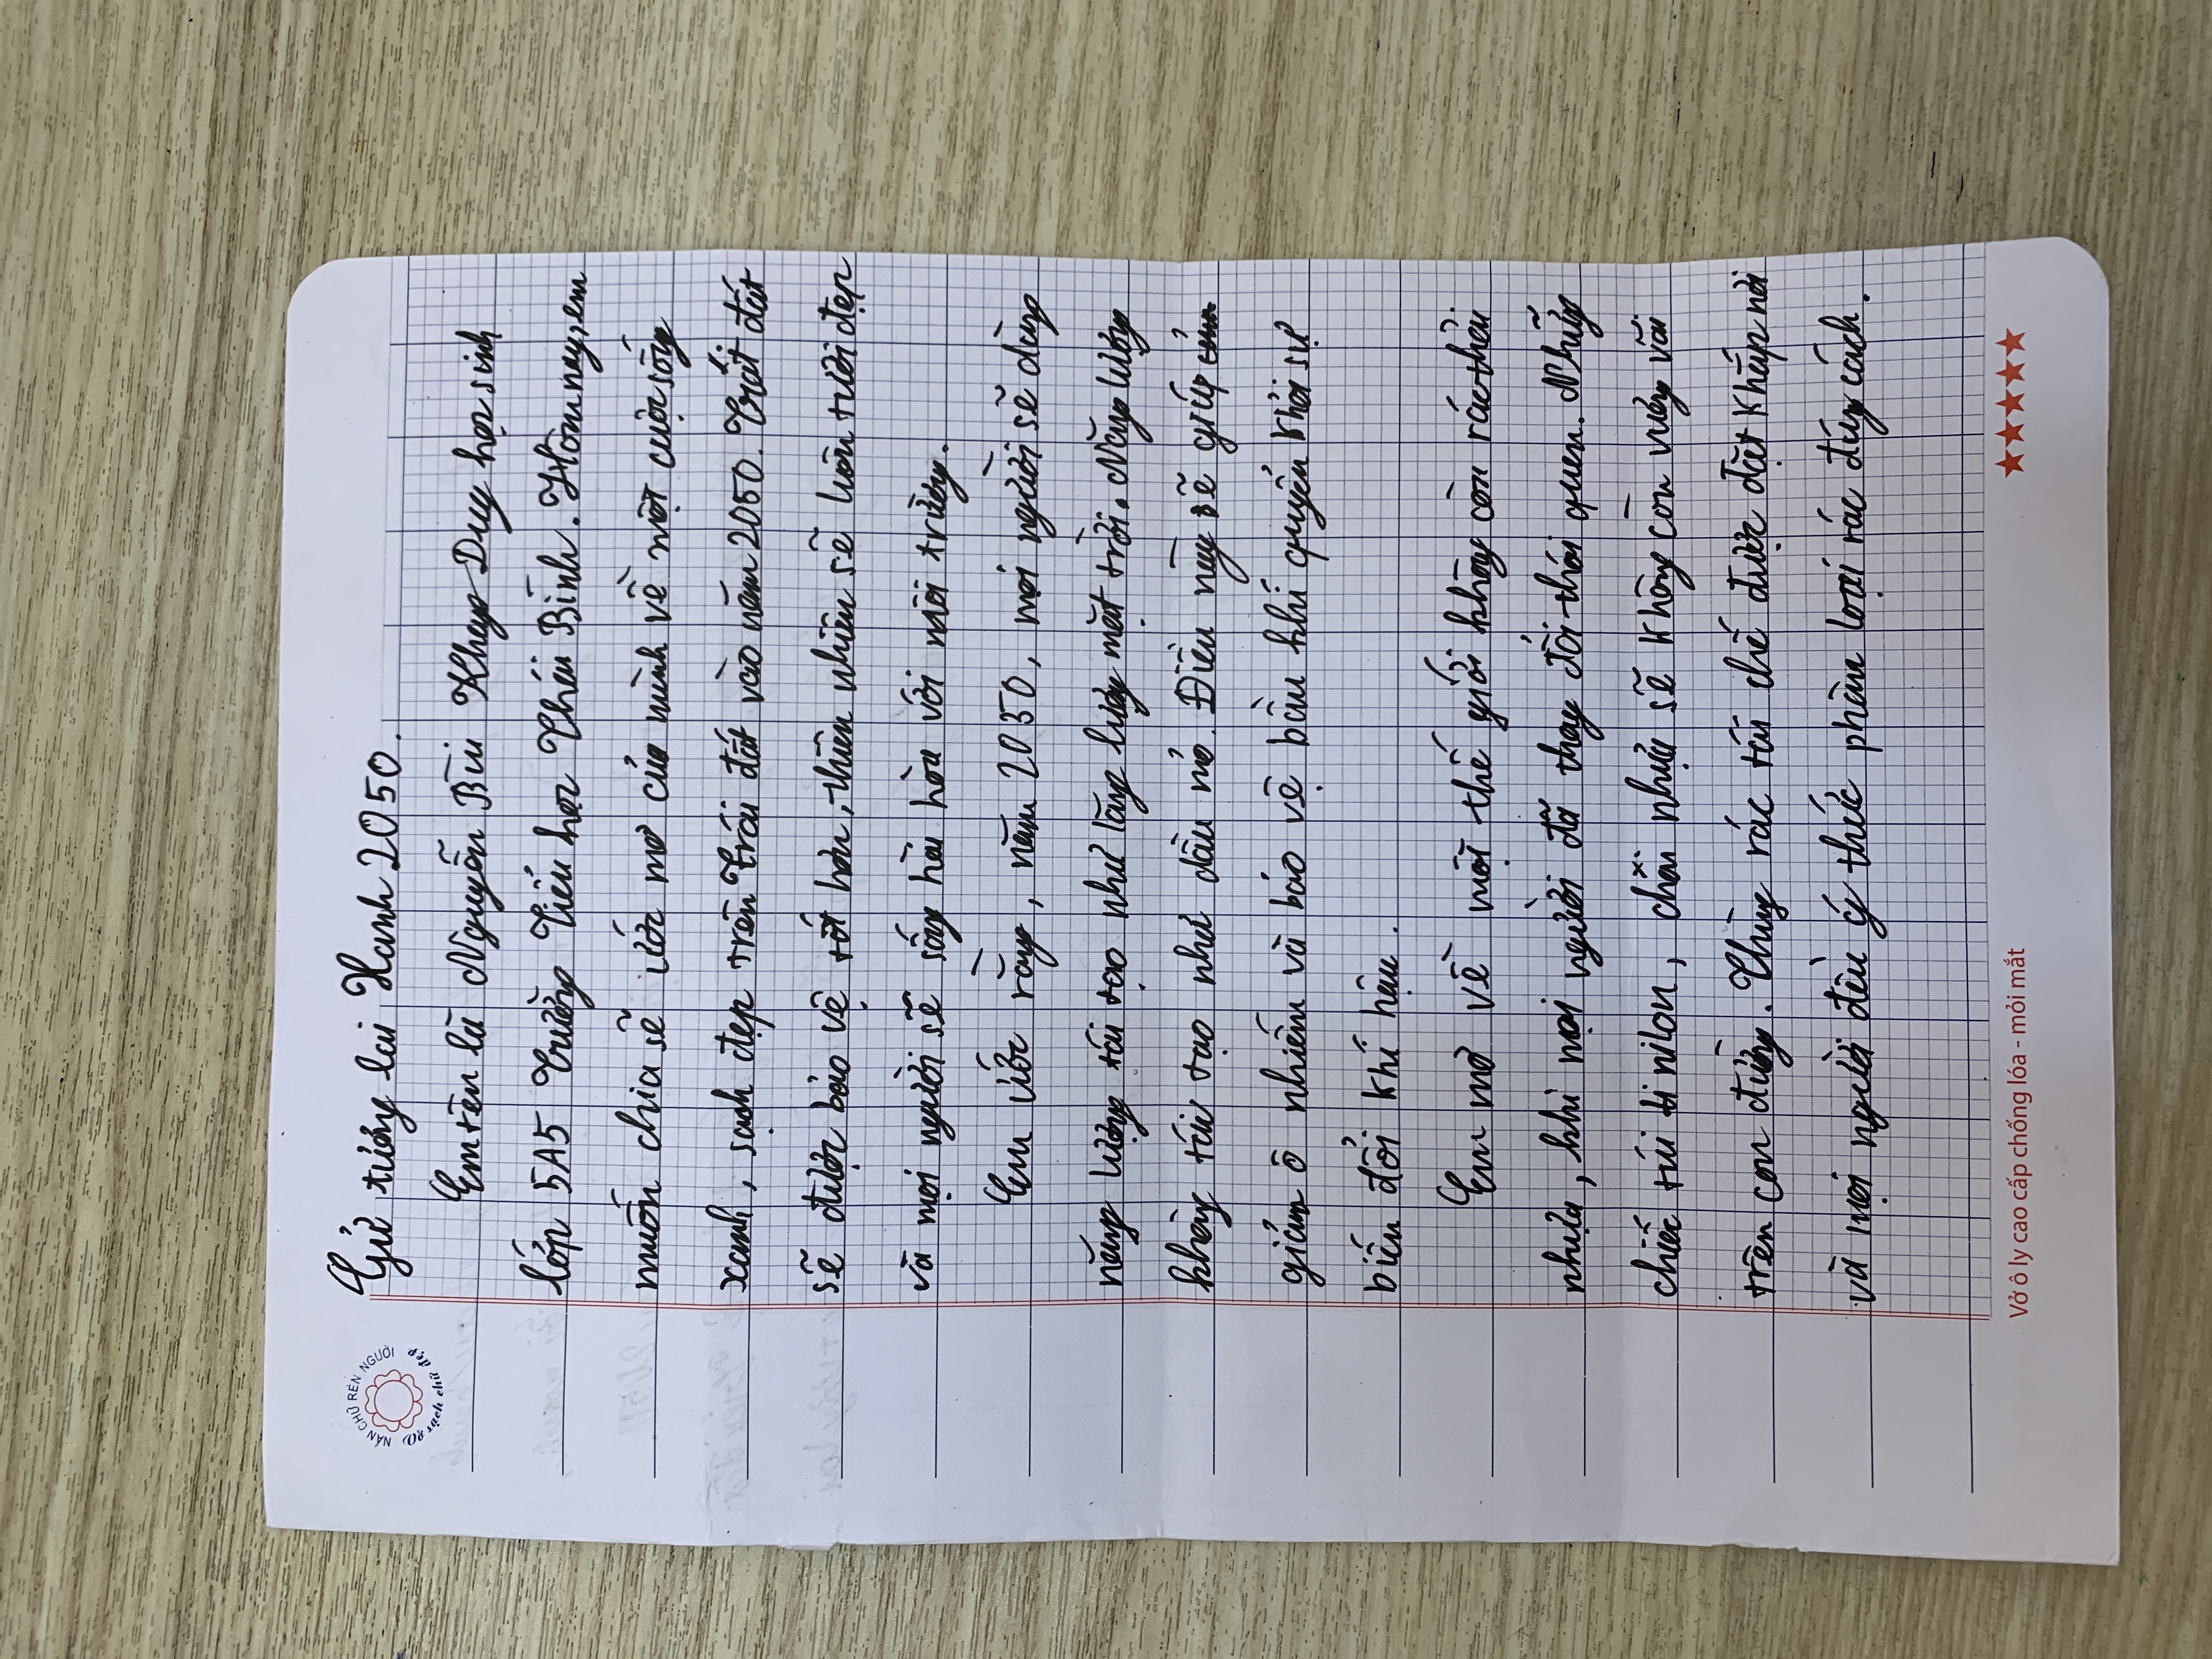 NẮN CHỮ RÈN NGƯỜI
Vở sạch chữ đẹp
Gửi tương lai Xanh 2050.
Em tên là Nguyễn Bùi Khang Duy học sinh
lớp 5A5 Trường Tiểu học Thái Bình. Hôm nay, em
muốn chia sẽ ước mơ của mình về một cuộc sống
xanh, sạch đẹp trên Trái đất vào năm 2050. Trái đất
sẽ được bảo vệ tốt hơn, thiên nhiên sẽ luôn tươi đẹp
và mọi người sẽ sống hài hòa với môi trường.
Em ước rằng, năm 2050, mọi người sẽ dùng
năng lượng tái tạo như lăng lượng mặt trời. Năng lượng
không tái tạo như dầu mỏ. Điều này sẽ giúp
giảm ô nhiễm và bảo vệ bầu khí quyển khỏi sự
biến đổi khí hậu.
Em mơ về một thế giới không còn rác thải
nhựa, khi mọi người đã thay đổi thói quen. Những
chiếc túi ni nilon, chai nhựa sẽ không còn vương vãi
trên con đường. Thùng rác tái chế được đặt khắp nơi
và mọi người đều ý thức phân loại rác đúng cách.
Vở ô ly cao cấp chống lóa - mỏi mắt